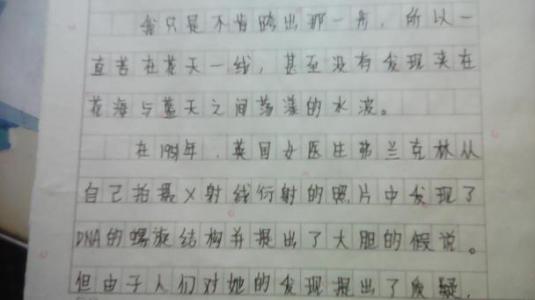 我只是不肯踏出那一步，所以一
直苦在花天一线，甚至没有发现夹在
花海与蓝天之间荡漾的水波。
在1951年，英国女医生弗兰克林从
自己拍摄X射线衍射的照片中发现了
DNA的螺旋结构并提出了大胆的假说。
但由于人们对她的发现提出了质疑，